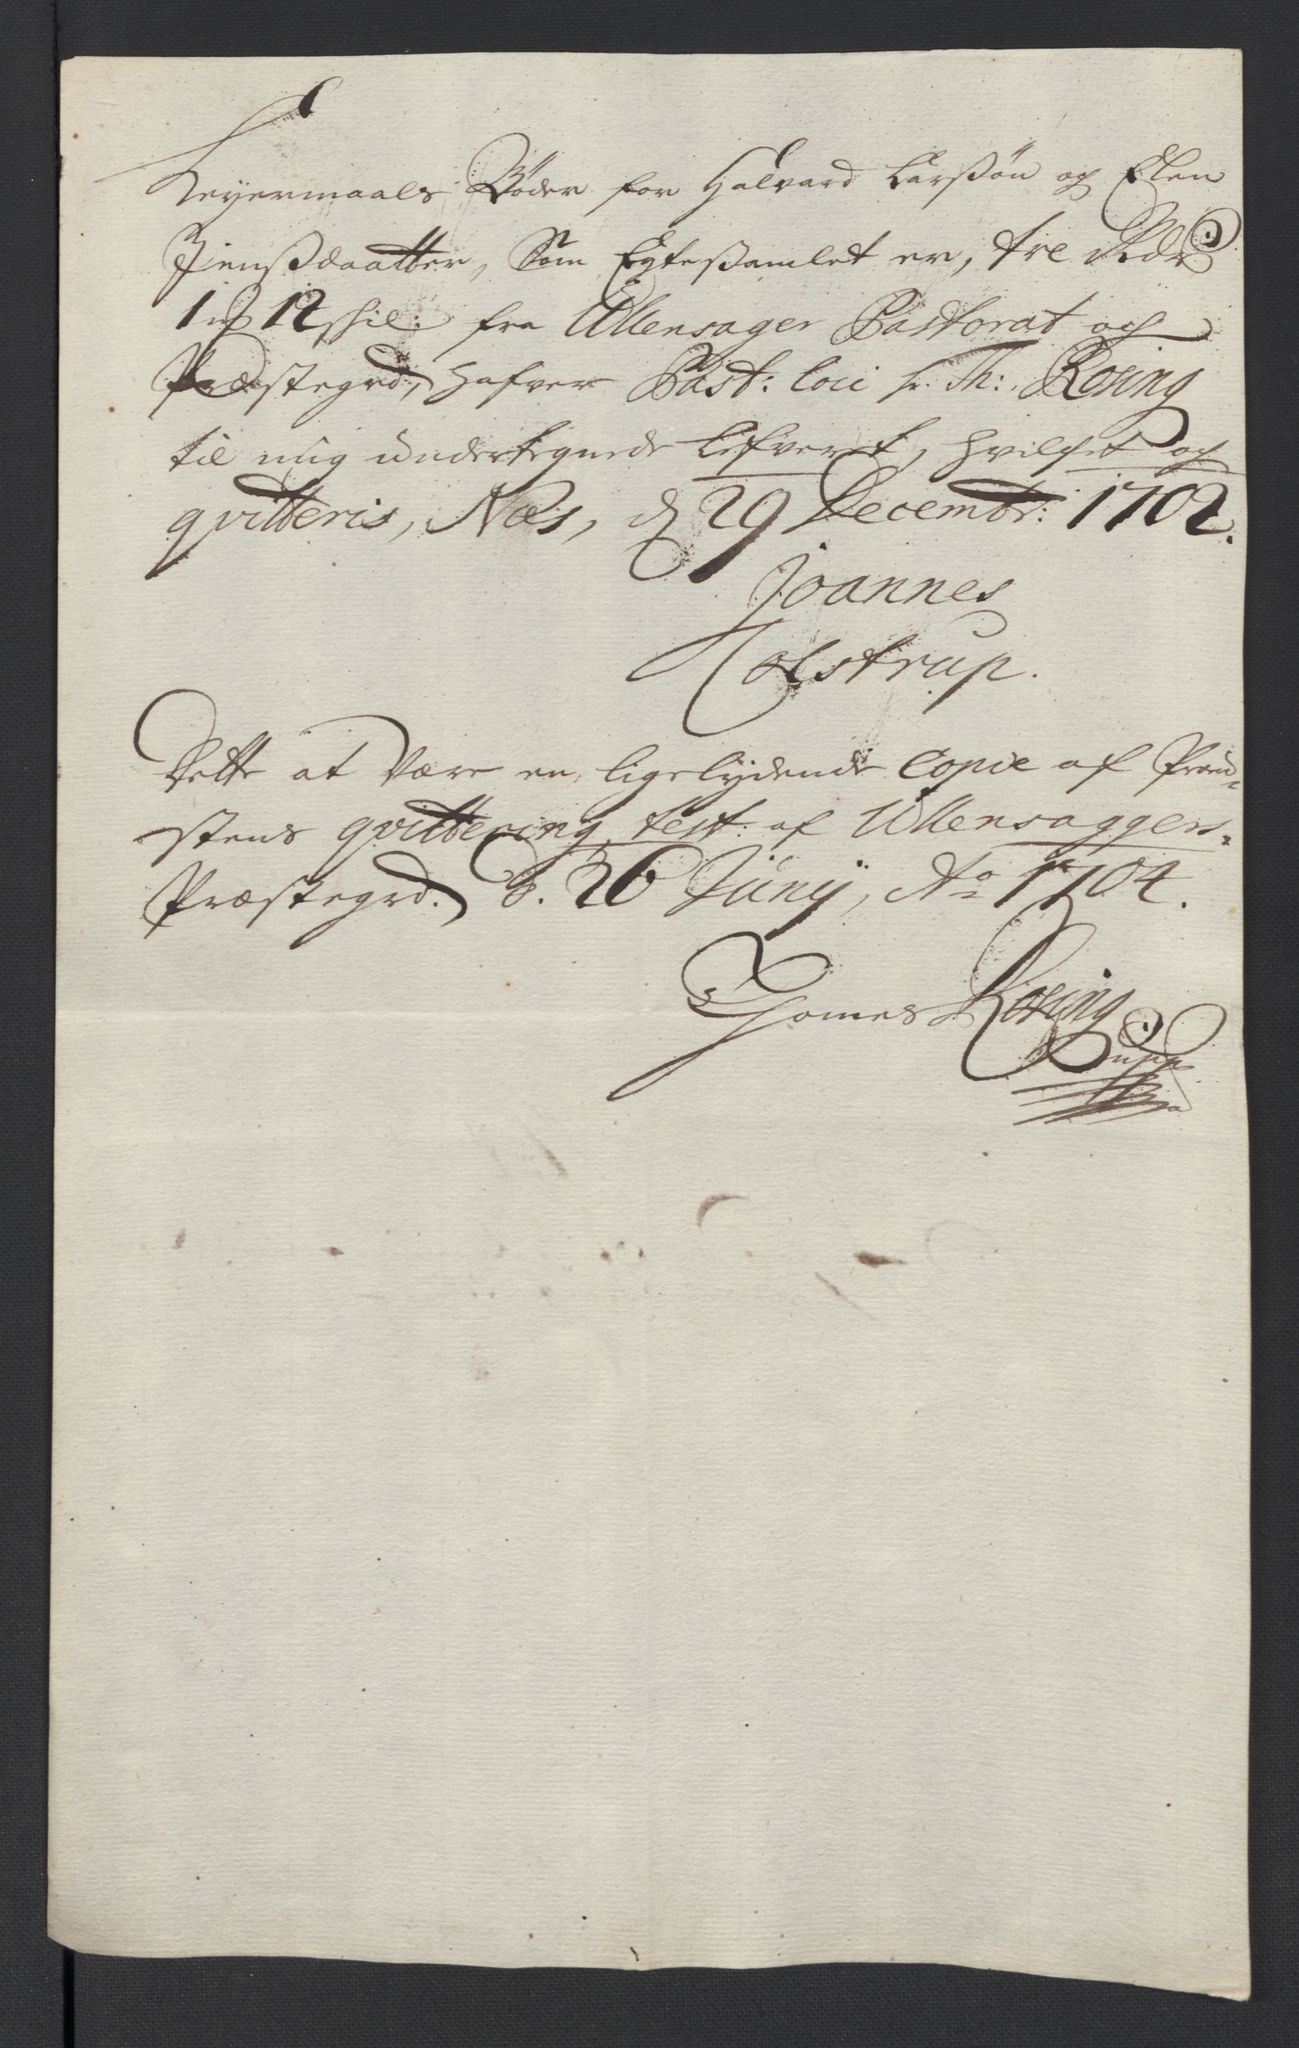 Leyermaals Bøder for Halvard Larssøn og Elen
Jenssdaatter, Som Egtessamlet er, tre Rdr
1 12 shil: fra Ullensager Pastorat och
Præstegrd, hafver Past: loci hr. Th: Rosing
til mig undertegnede lefveret, hvilchet og
qvitteris, Næs, d 29 Decembr: 1702.
Joannes
Colstrup.
Dette at være en ligelydende Copie af Prov-
stens qvittering, test: af Ullensaggers-
Præstegrd. d. 26 Junij, Ao 1704.
Thomes Rosing